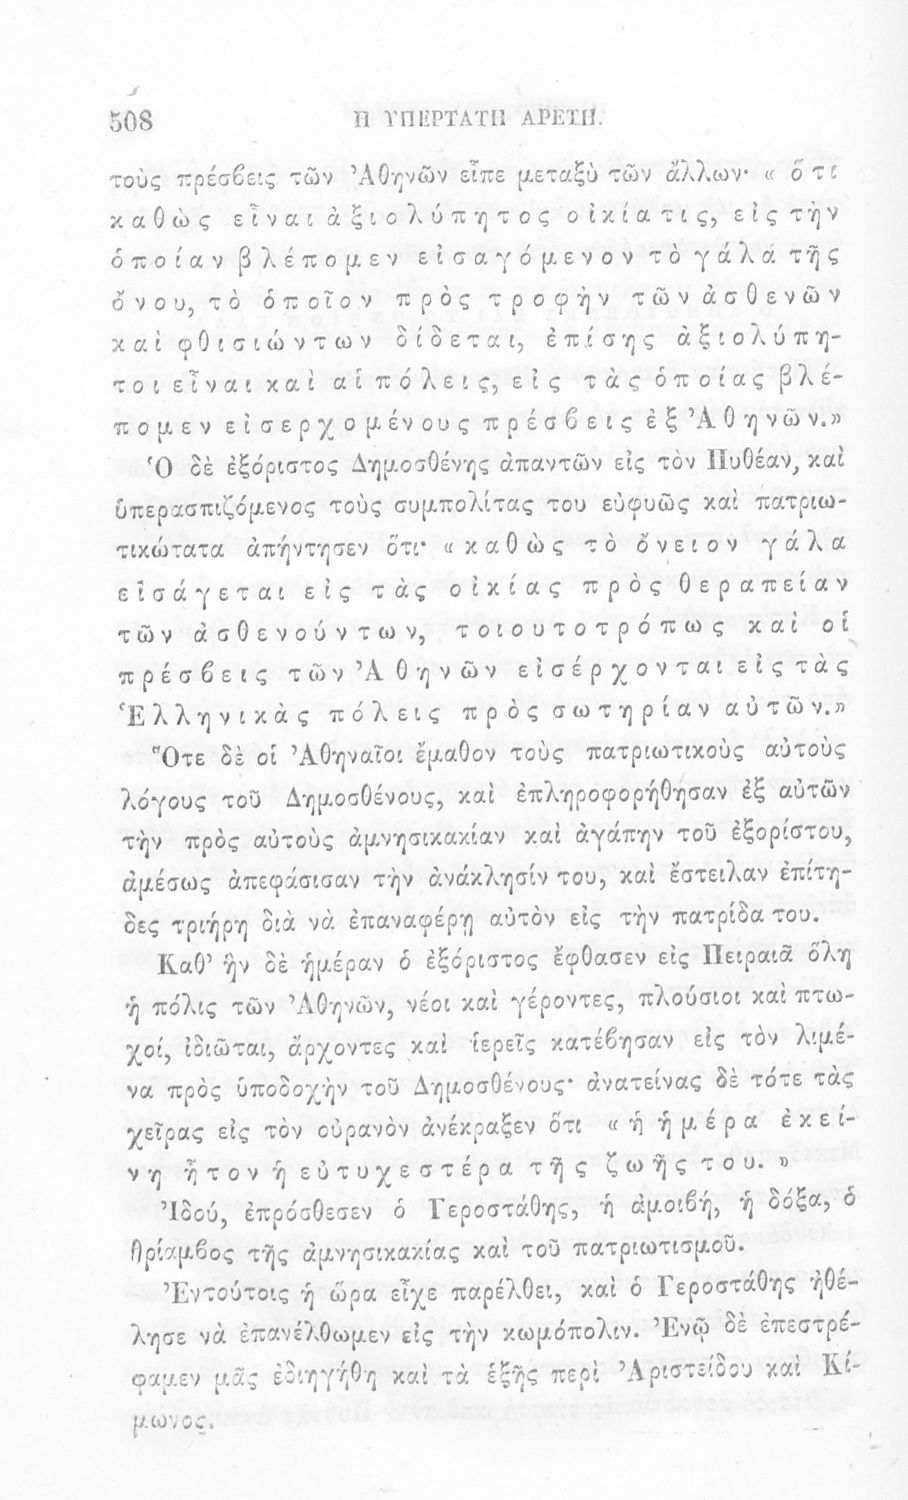 508 Η ΥΠΕΡΤΑΤΗ ΑΡΕΤΗ.
τοὺς πρέσβεις τῶν Ἀθηνῶν εἶπε μεταξὺ τῶν ἄλλων· « ὅτι
καθὼς εἶναι ἀξιολύπητος οἰκία τις, εἰς τὴν
ὁποίαν βλέπομεν εἰσαγόμενον τὸ γάλα τῆς
ὄνου, τὸ ὁποῖον πρὸς τροφὴν τῶν ἀσθενῶν
καὶ φθισιώντων δίδεται, ἐπίσης ἀξιολύπη-
τοι εἶναι καὶ αἱ πόλεις, εἰς τὰς ὁποίας βλέ-
πομεν εἰσερχομένους πρέσβεις ἐξ Ἀθηνῶν.»
Ὁ δὲ ἐξόριστος Δημοσθένης ἀπαντῶν εἰς τὸν Πυθέαν, καὶ
ὑπερασπιζόμενος τοὺς συμπολίτας του εὐφυῶς καὶ πατριω-
τικώτατα ἀπήντησεν ὅτι· « καθὼς τὸ ὄνειον γάλα
εἰσάγεται εἰς τὰς οἰκίας πρὸς θεραπείαν
τῶν ἀσθενούντων, τοιουτοτρόπως καὶ οἱ
πρέσβεις τῶν Ἀθηνῶν εἰσέρχονται εἰς τὰς
Ἑλληνικὰς πόλεις πρὸς σωτηρίαν αὐτῶν.»
Ὅτε δὲ οἱ Ἀθηναῖοι ἔμαθον τοὺς πατριωτικοὺς αὐτοὺς
λόγους τοῦ Δημοσθένους, καὶ ἐπληροφορήθησαν ἐξ αὐτῶν
τὴν πρὸς αὐτοὺς ἀμνησικακίαν καὶ ἀγάπην τοῦ ἐξορίστου,
ἀμέσως ἀπεφάσισαν τὴν ἀνάκλησίν του, καὶ ἔστειλαν ἐπίτη-
δες τριήρη διὰ νὰ ἐπαναφέρῃ αὐτὸν εἰς τὴν πατρίδα του.
Καθ’ ἣν δὲ ἡμέραν ὁ ἐξόριστος ἔφθασεν εἰς Πειραιᾶ ὅλη
ἡ πόλις τῶν Ἀθηνῶν, νέοι καὶ γέροντες, πλούσιοι καὶ πτω-
χοί, ἰδιῶται, ἄρχοντες καὶ ἱερεῖς κατέβησαν εἰς τὸν λιμέ-
να πρὸς ὑποδοχὴν τοῦ Δημοσθένους· ἀνατείνας δὲ τότε τὰς
χεῖρας εἰς τὸν οὐρανὸν ἀνέκραξεν ὅτι « ἡ ἡμέρα ἐκεί-
νη ἦτον ἡ εὐτυχεστέρα τῆς ζωῆς του. »
Ἰδού, ἐπρόσθεσεν ὁ Γεροστάθης, ἡ ἀμοιβή, ἡ δόξα, ὁ
θρίαμβος τῆς ἀμνησικακίας καὶ τοῦ πατριωτισμοῦ.
Ἐντούτοις ἡ ὥρα εἶχε παρέλθει, καὶ ὁ Γεροστάθης ἠθέ-
λησε νὰ ἐπανέλθωμεν εἰς τὴν κωμόπολιν. Ἐνῷ δὲ ἐπεστρέ-
φαμεν μᾶς ἐδιηγήθη καὶ τὰ ἑξῆς περὶ Ἀριστείδου καὶ Κί-
μωνος.